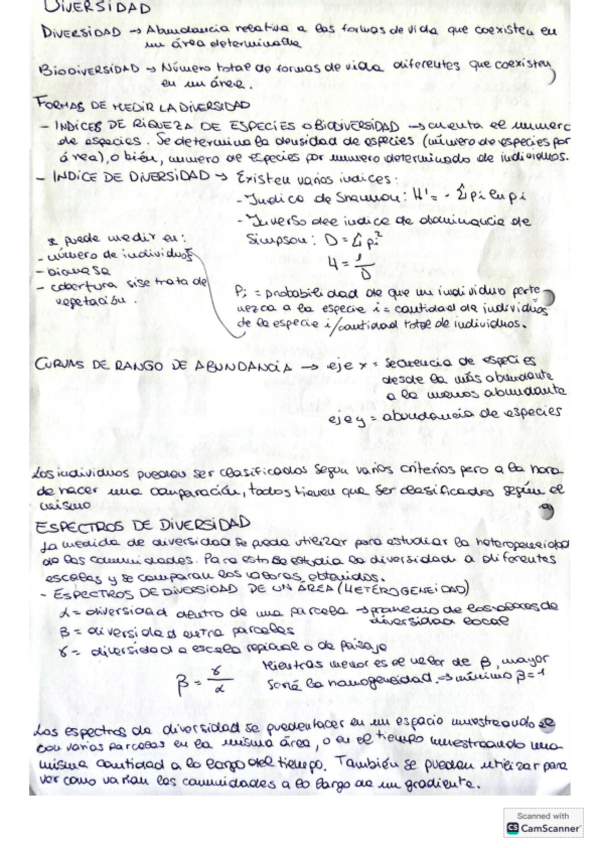 DIVERSIDAD
DIVERSIDAD → Abundancia relativa a las formas de vida que coexisten en
un área determinada
BIODIVERSIDAD → Número total de formas de vida diferentes que coexisten
en un área.
FORMAS DE MEDIR LA DIVERSIDAD
- INDICES DE RIQUEZA DE ESPECIES O BIODIVERSIDAD → cuenta el numero
de especies. Se determina la densidad de especies (número de especies por
área), o bien, numero de especies por numero determinado de individuos.
- INDICE DE DIVERSIDAD → Existen varios indices:
- Indice de Shannon: H' = - Σ pi ln pi
- Inverso del indice de dominancia de
Simpson: D = Σ pi²
* puede medir en:
- número de individuos
- biomasa
- cobertura si se trata de
vegetación.
4 = 1/D
Pi = probabilidad de que un individuo perte
nezca a la especie i = cantidad de individuos
de la especie i/cantidad total de individuos.
CURVAS DE RANGO DE ABUNDANCIA → eje x = secuencia de especies
desde la más abundante
a la menos abundante
eje y = abundancia de especies
Los individuos pueden ser clasificados según varios criterios pero a la hora
de hacer una comparación, todos tienen que ser clasificados según el
mismo
ESPECTROS DE DIVERSIDAD
La medida de diversidad se puede utilizar para estudiar la heterogeneidad
de las comunidades. Para esto se estudia la diversidad a diferentes
escalas y se comparan los valores obtenidos.
- ESPECTROS DE DIVERSIDAD DE UN ÁREA (HETEROGENEIDAD)
α = diversidad dentro de una parcela → promedio de los valores de
diversidad local
β = diversidad entre parcelas
γ = diversidad a escala regional o de paisaje
β = γ/α
Mientras menor es el valor de β, mayor
será la homogeneidad → mínimo β = 1
Los espectros de diversidad se pueden hacer en un espacio muestreando
con varias parcelas en la misma área, o en el tiempo muestreando una
misma cantidad a lo largo del tiempo. También se pueden utilizar para
ver como varían las comunidades a lo largo de un gradiente.
Scanned with
CS CamScanner